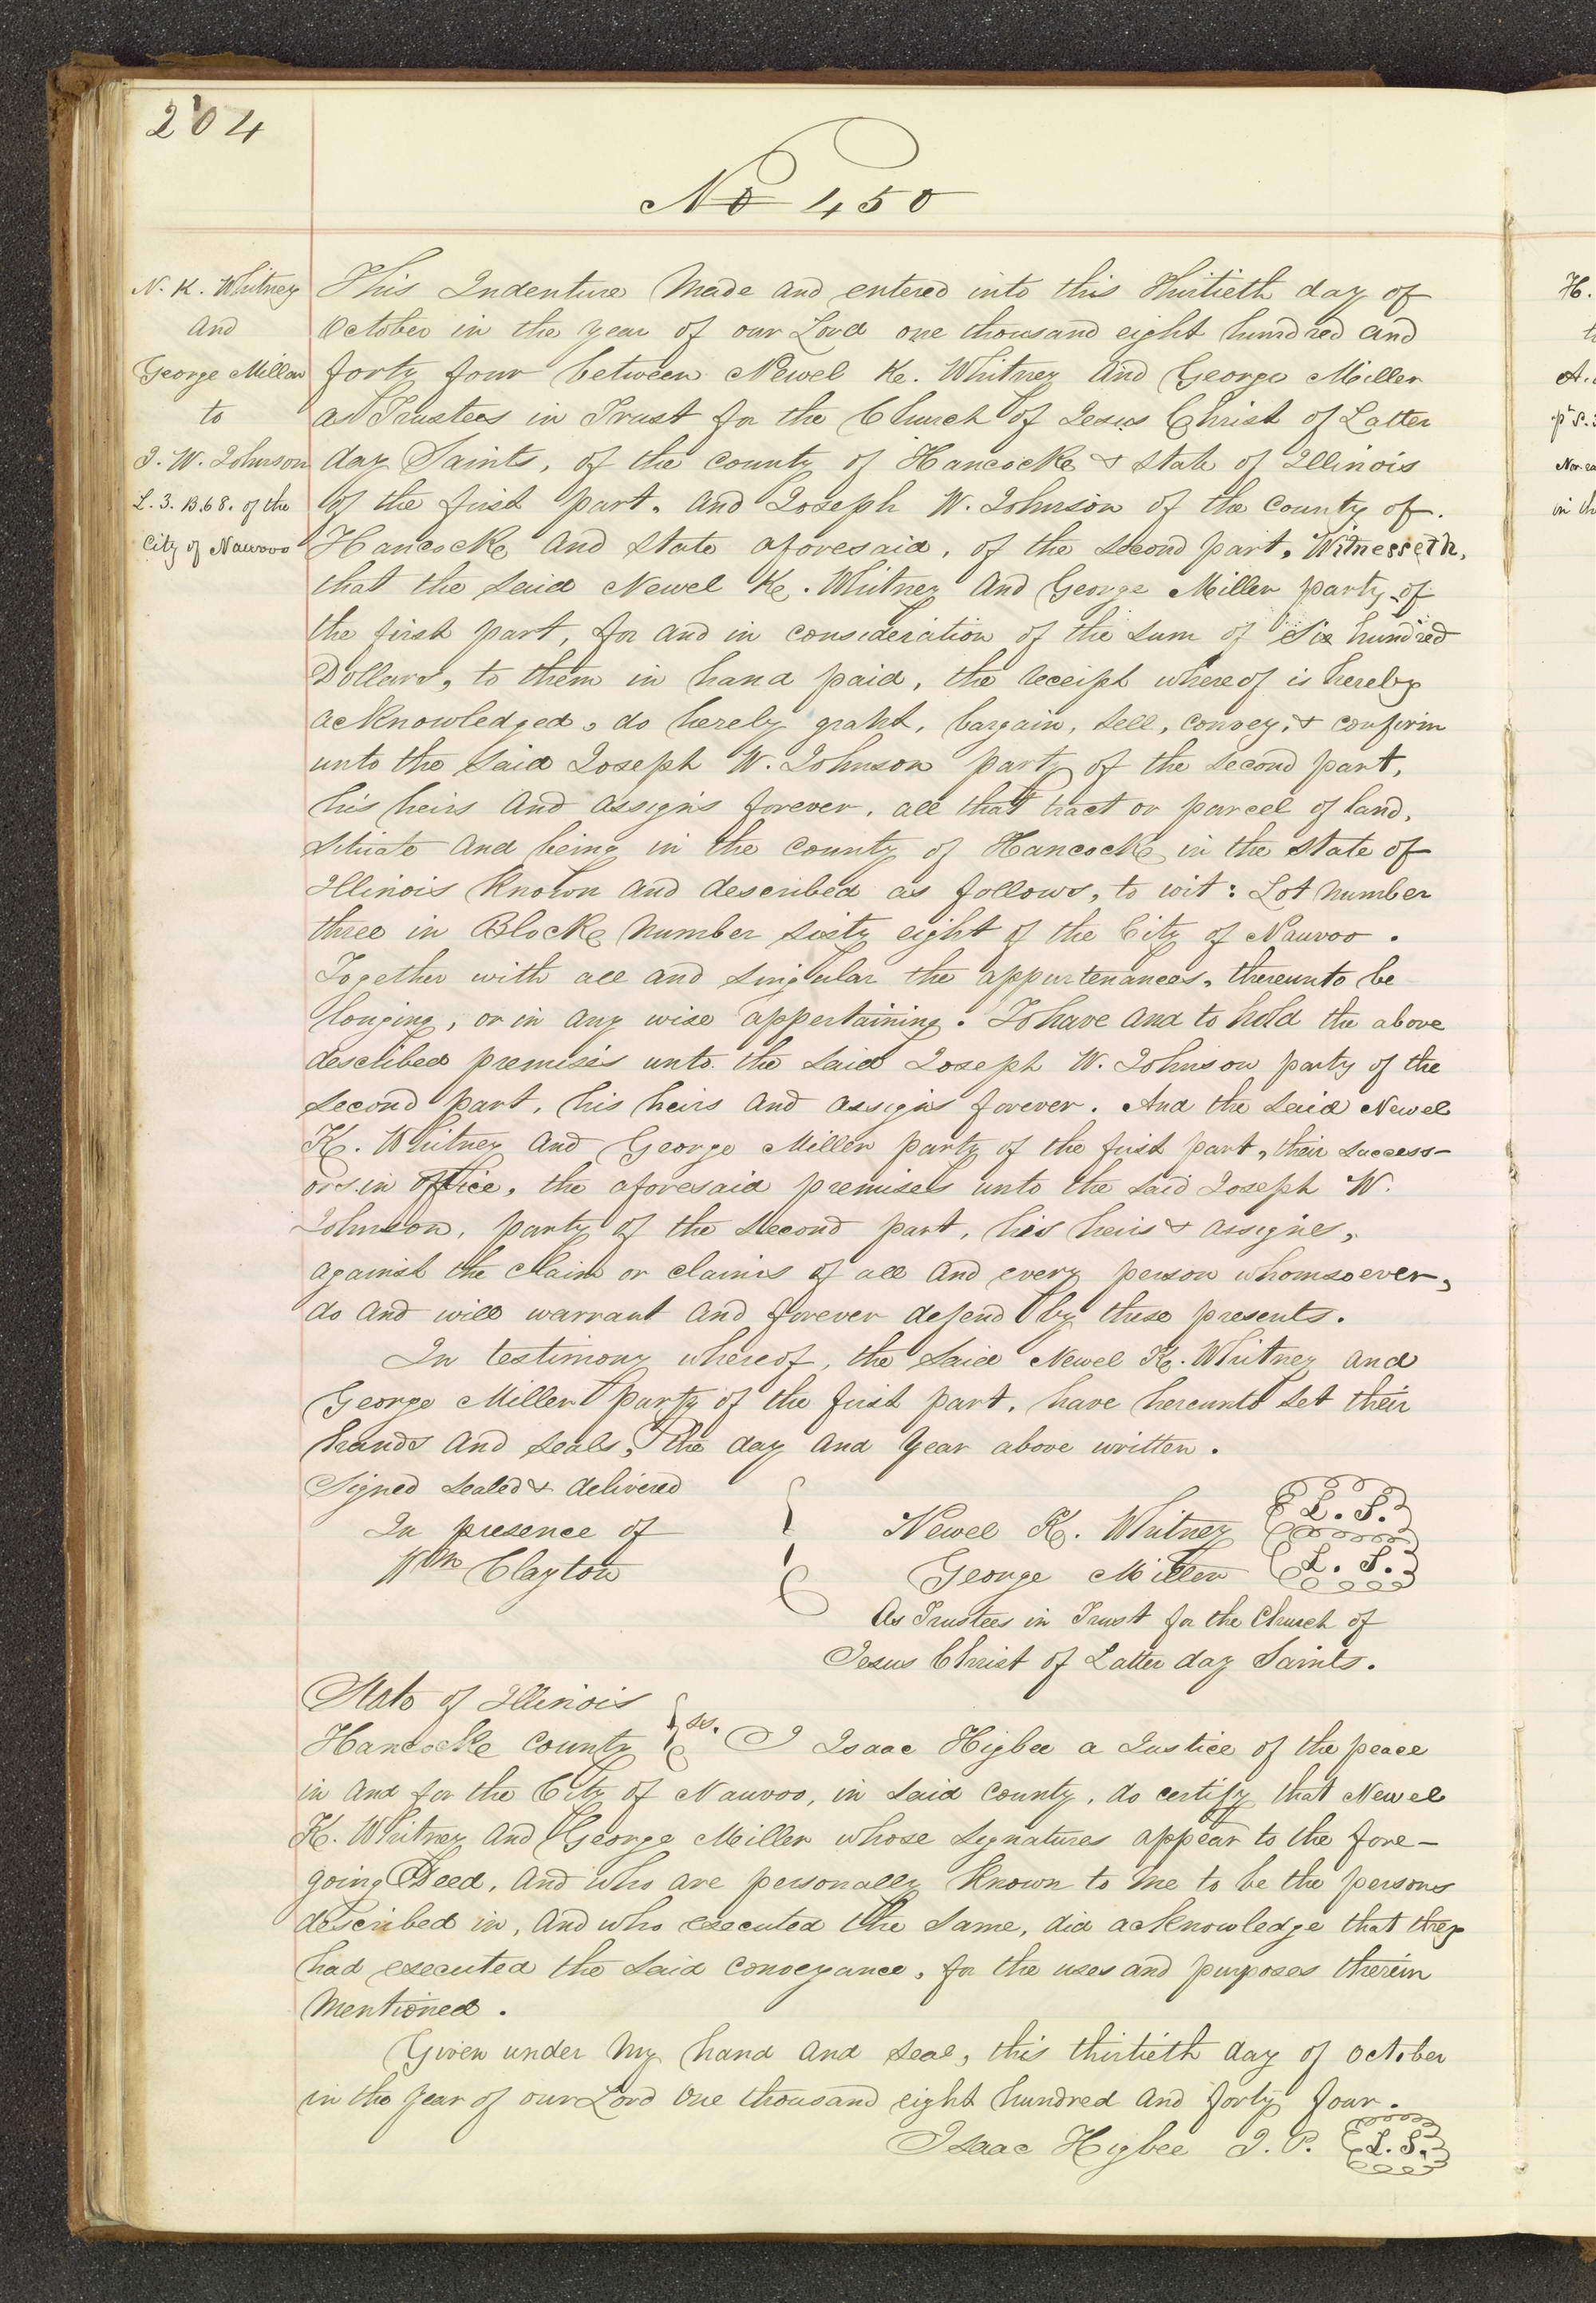 204
No 450
N. K. Whitney
And
George Miller
to
J. W. Johnson
L. 3. B. 68. of the
City of Nauvoo
This Indenture Made and entered into this Thirtieth day of
October in the year of our Lord one thousand eight hundred and
forty four between Newel K. Whitney And George Miller
as Trustees in Trust for the Church of Jesus Christ of Latter
day Saints, of the county of Hancock & state of Illinois
of the first part, And Joseph W. Johnson of the county of.
Hancock And State aforesaid, of the second part, Witnesseth,
that the said Newel K. Whitney And George Miller party of
the first part, for and in consideration of the sum of Six hundred
Dollars, to them in hand paid, the receipt whereof is hereby
acknowledged, do hereby graht, bargain, sell, convey, & confirm
unto the said Joseph W. Johnson party of the second part,
his heirs And assigns forever, all that tract or parcel of land,
situate And being in the county of Hancock in the state of
Illinois Known And described as follows, to wit: Lot Number
three in Block Number sixty eight of the City of Nauvoo.
Together with all and singular the appurtenances, thereunto be
longing, or in any wise appertaining. To have And to hold the above
described premises unto the said Joseph W. Johnson party of the
second part, his heirs And assigns forever. And the said Newel
K. Whitney And George Miller party of the first part, their success-
ors in office, the aforesaid premises unto the said Joseph W.
Johnson, party of the second part, his heirs & assigns,
against the claim or claims of all And every person whomsoever,
do And will warrant And forever defend by these presents.
In testimony whereof, the said Newel K. Whitney And
George Miller party of the first part, have hereunto set their
hands And seals, the day And Year above written.
Signed sealed & delivered
In presence of
Wm Clayton
Newel K. Whitney L. S.
George Miller L. S.
As Trustees in Trust for the Church of
Jesus Christ of Latter day Saints.
State of Illinois
Hancock County ss. I Isaac Higbee a Justice of the peace
in And for the City of Nauvoo, in said county, do certify that Newel
K. Whitney And George Miller whose signatures appear to the fore-
going Deed, And who are personally Known to Me to be the persons
described in, And who executed the same, did acknowledge that they
had executed the said conveyance, for the uses and purposes therein
Mentioned.
Given under My hand And seal, this thirtieth day of October
in the Year of our Lord One thousand eight hundred And forty four.
Isaac Higbee J. P. L. S.
H.
A.
in th